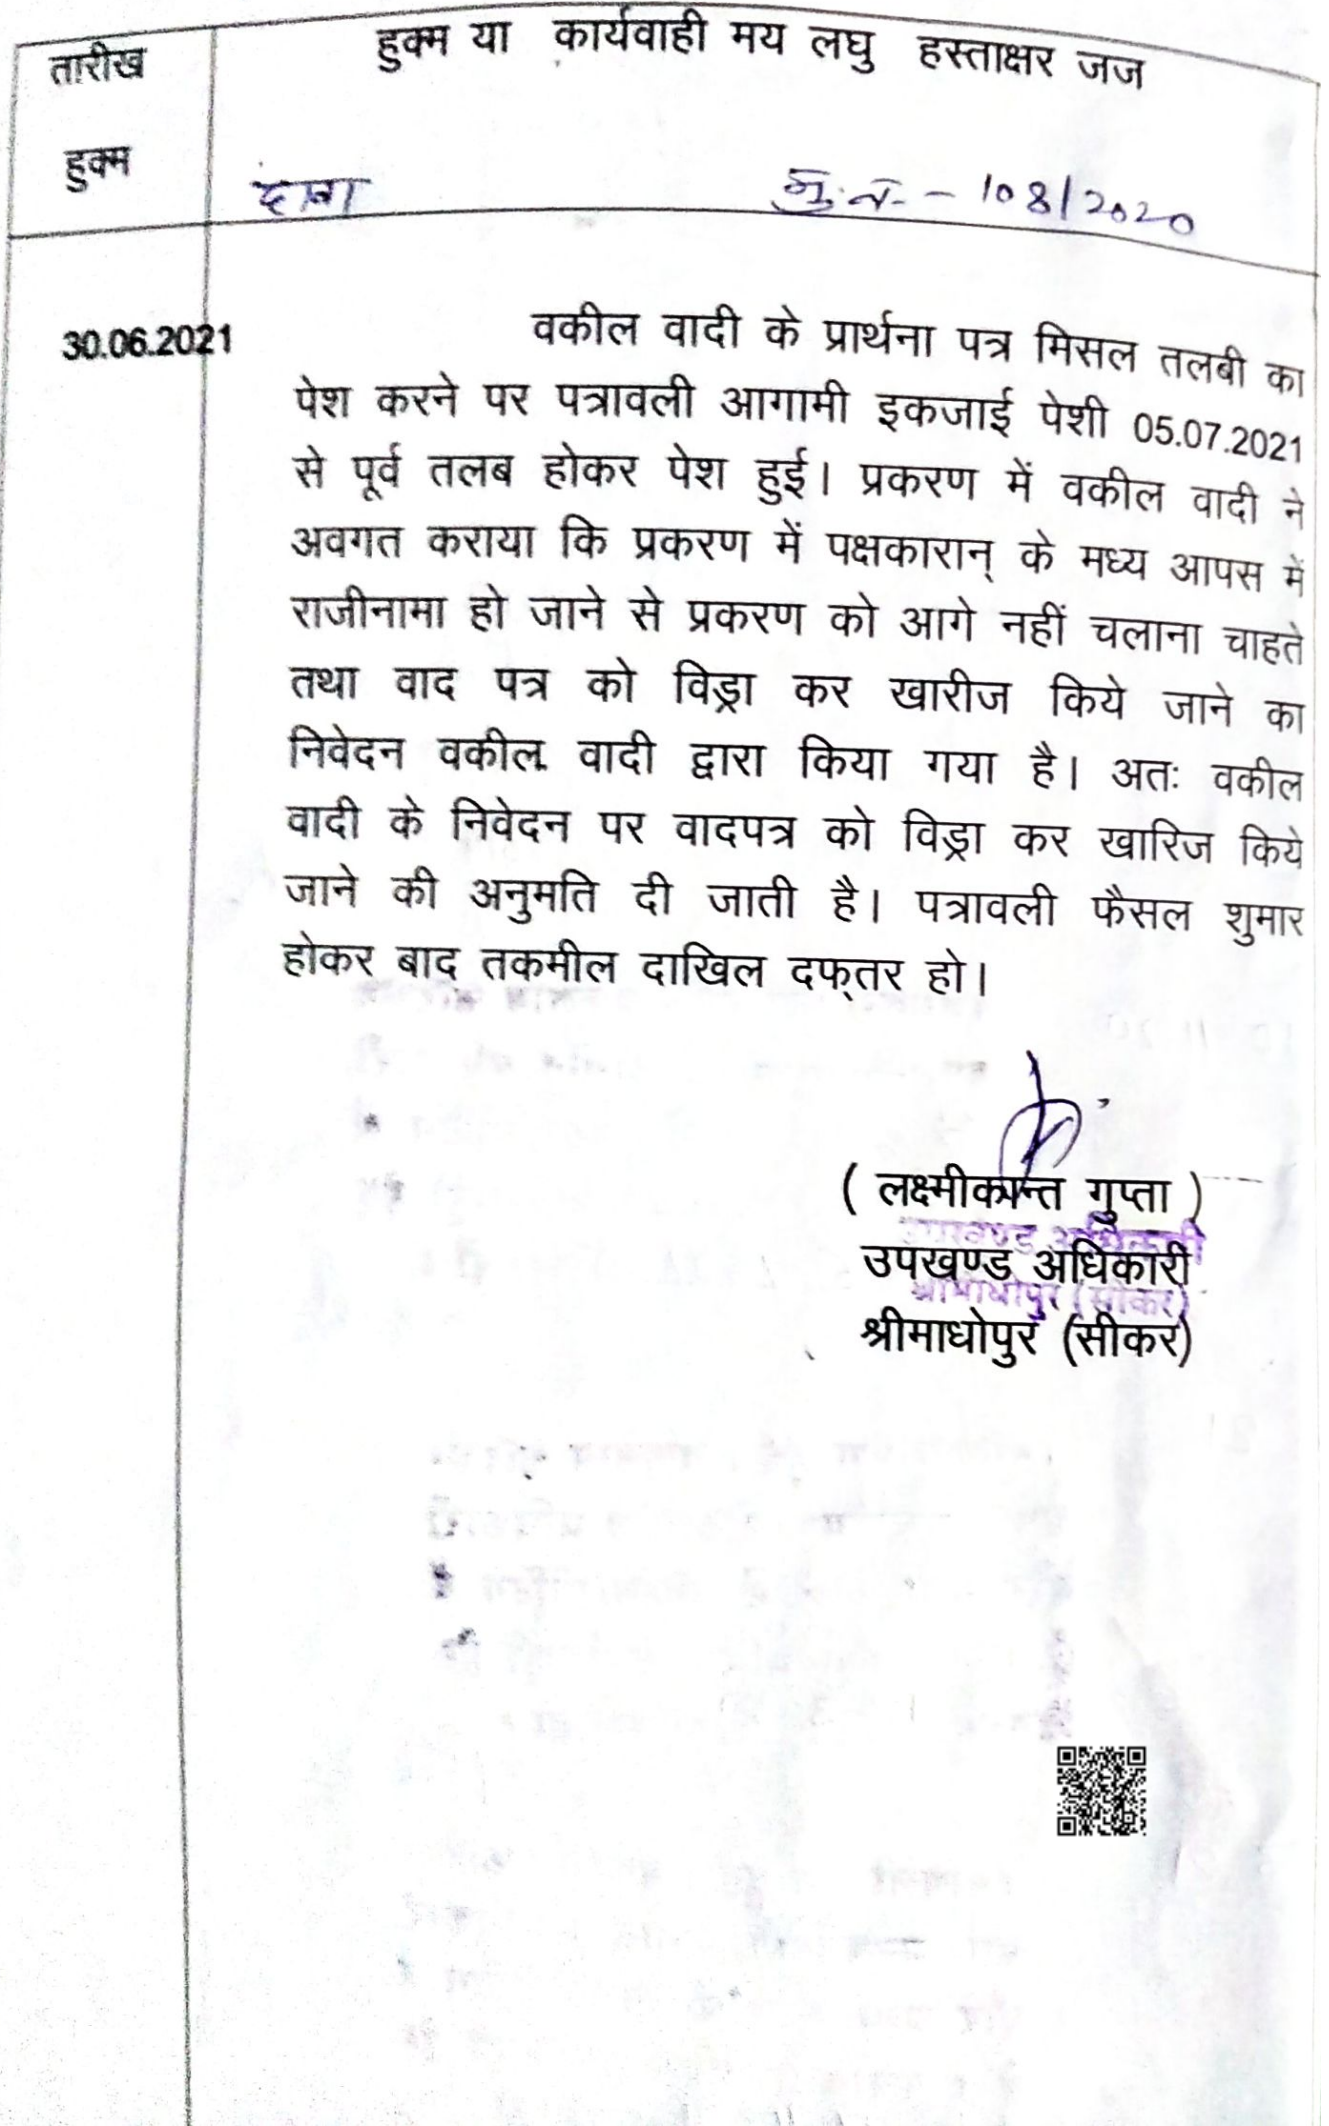 तारीख
हुक्म
हुक्म या कार्यवाही मय लघु हस्ताक्षर जज
दावा
मु.न. - 108/2020
30.06.2021
वकील वादी के प्रार्थना पत्र मिसल तलबी का
पेश करने पर पत्रावली आगामी इकजाई पेशी 05.07.2021
से पूर्व तलब होकर पेश हुई। प्रकरण में वकील वादी ने
अवगत कराया कि प्रकरण में पक्षकारान् के मध्य आपस में
राजीनामा हो जाने से प्रकरण को आगे नहीं चलाना चाहते
तथा वाद पत्र को विड्रा कर खारीज किये जाने का
निवेदन वकील वादी द्वारा किया गया है। अतः वकील
वादी के निवेदन पर वादपत्र को विड्रा कर खारिज किये
जाने की अनुमति दी जाती है। पत्रावली फैसल शुमार
होकर बाद तकमील दाखिल दफ्‌तर हो।
( लक्ष्मीकान्त गुप्ता )
उपखण्ड अधिकारी
उपखण्ड अधिकारी
श्रीमाधोपुर (सीकर)
श्रीमाधोपुर (सीकर)